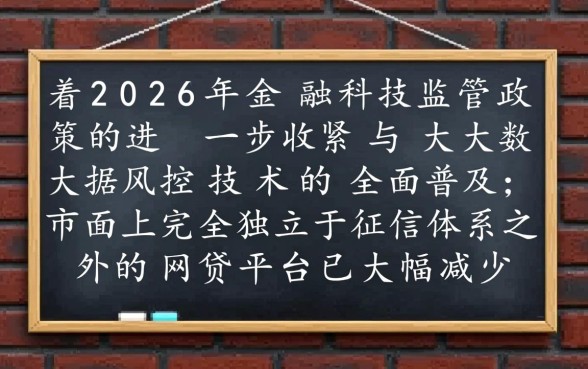 着2026年金 融科技监管政
策的进 一步收紧 与 大大数
大据风控 技 术 的 全面普及；
市面上完全独立于征信体系之
外的 网贷平台已大幅减少